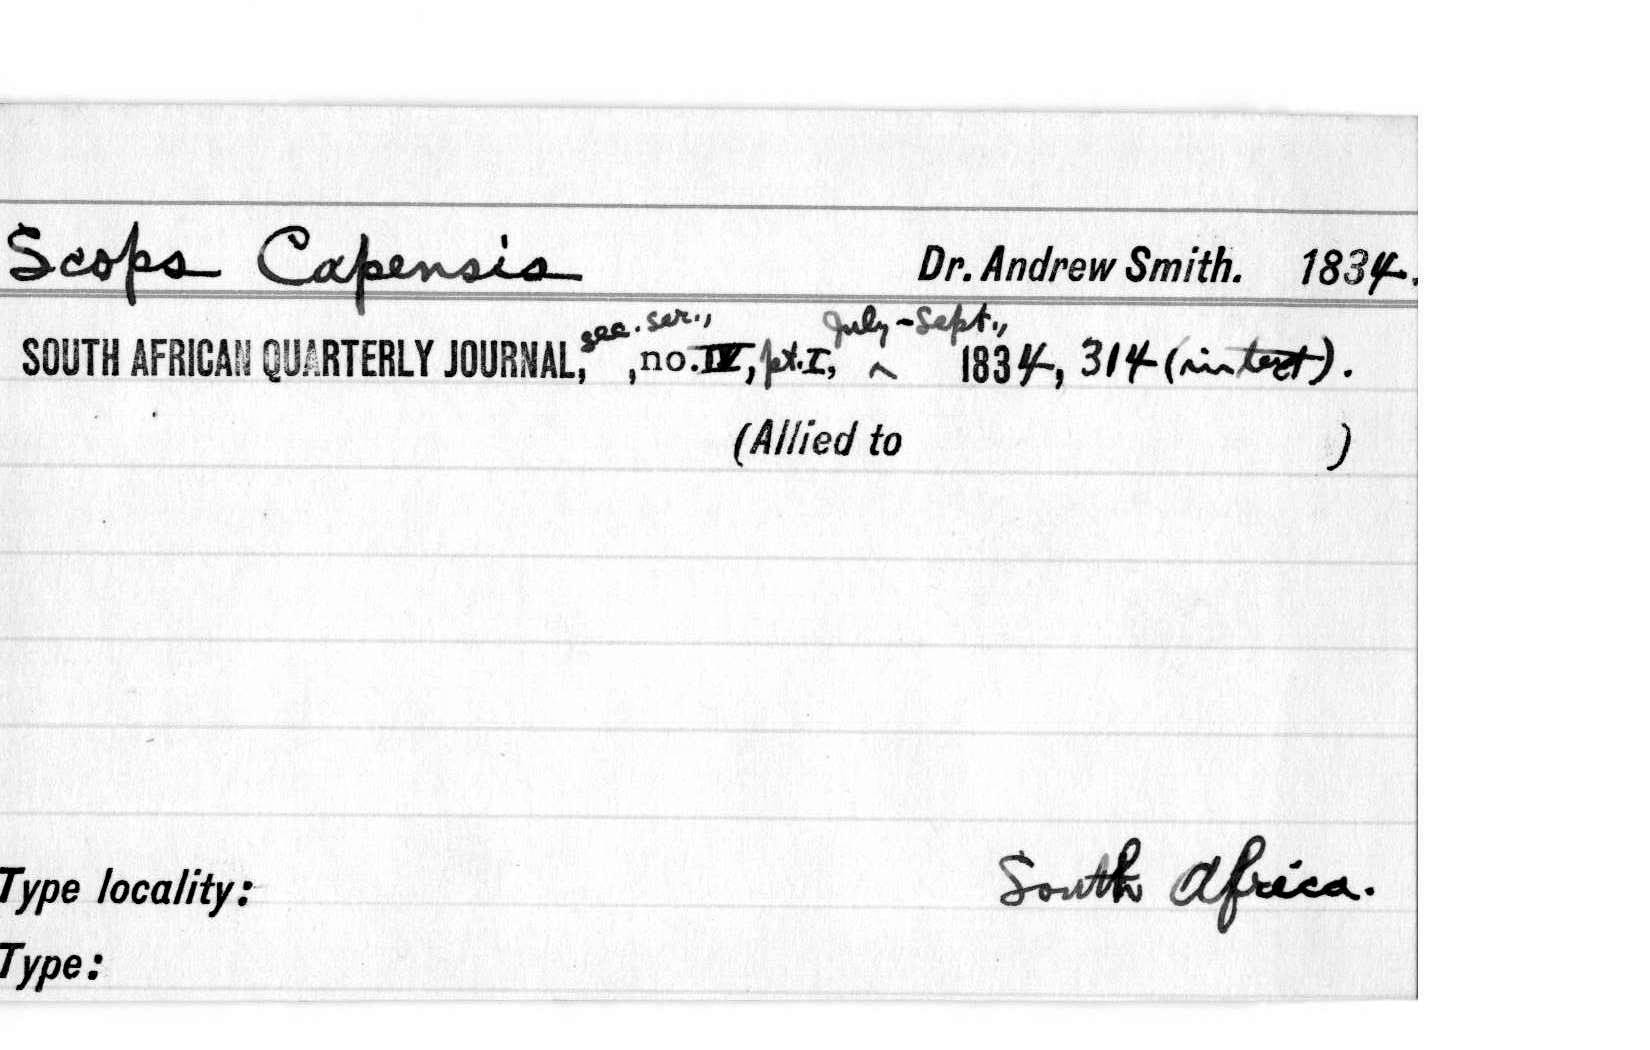 Scops Capensis Dr. Andrew Smith. 1834.
SOUTH AFRICAN QUARTERLY JOURNAL, sec. ser., , no. IV, pt. I, ^ July-Sept., 1834, 314 (in text).
(Allied to )
Type locality: South Africa.
Type: